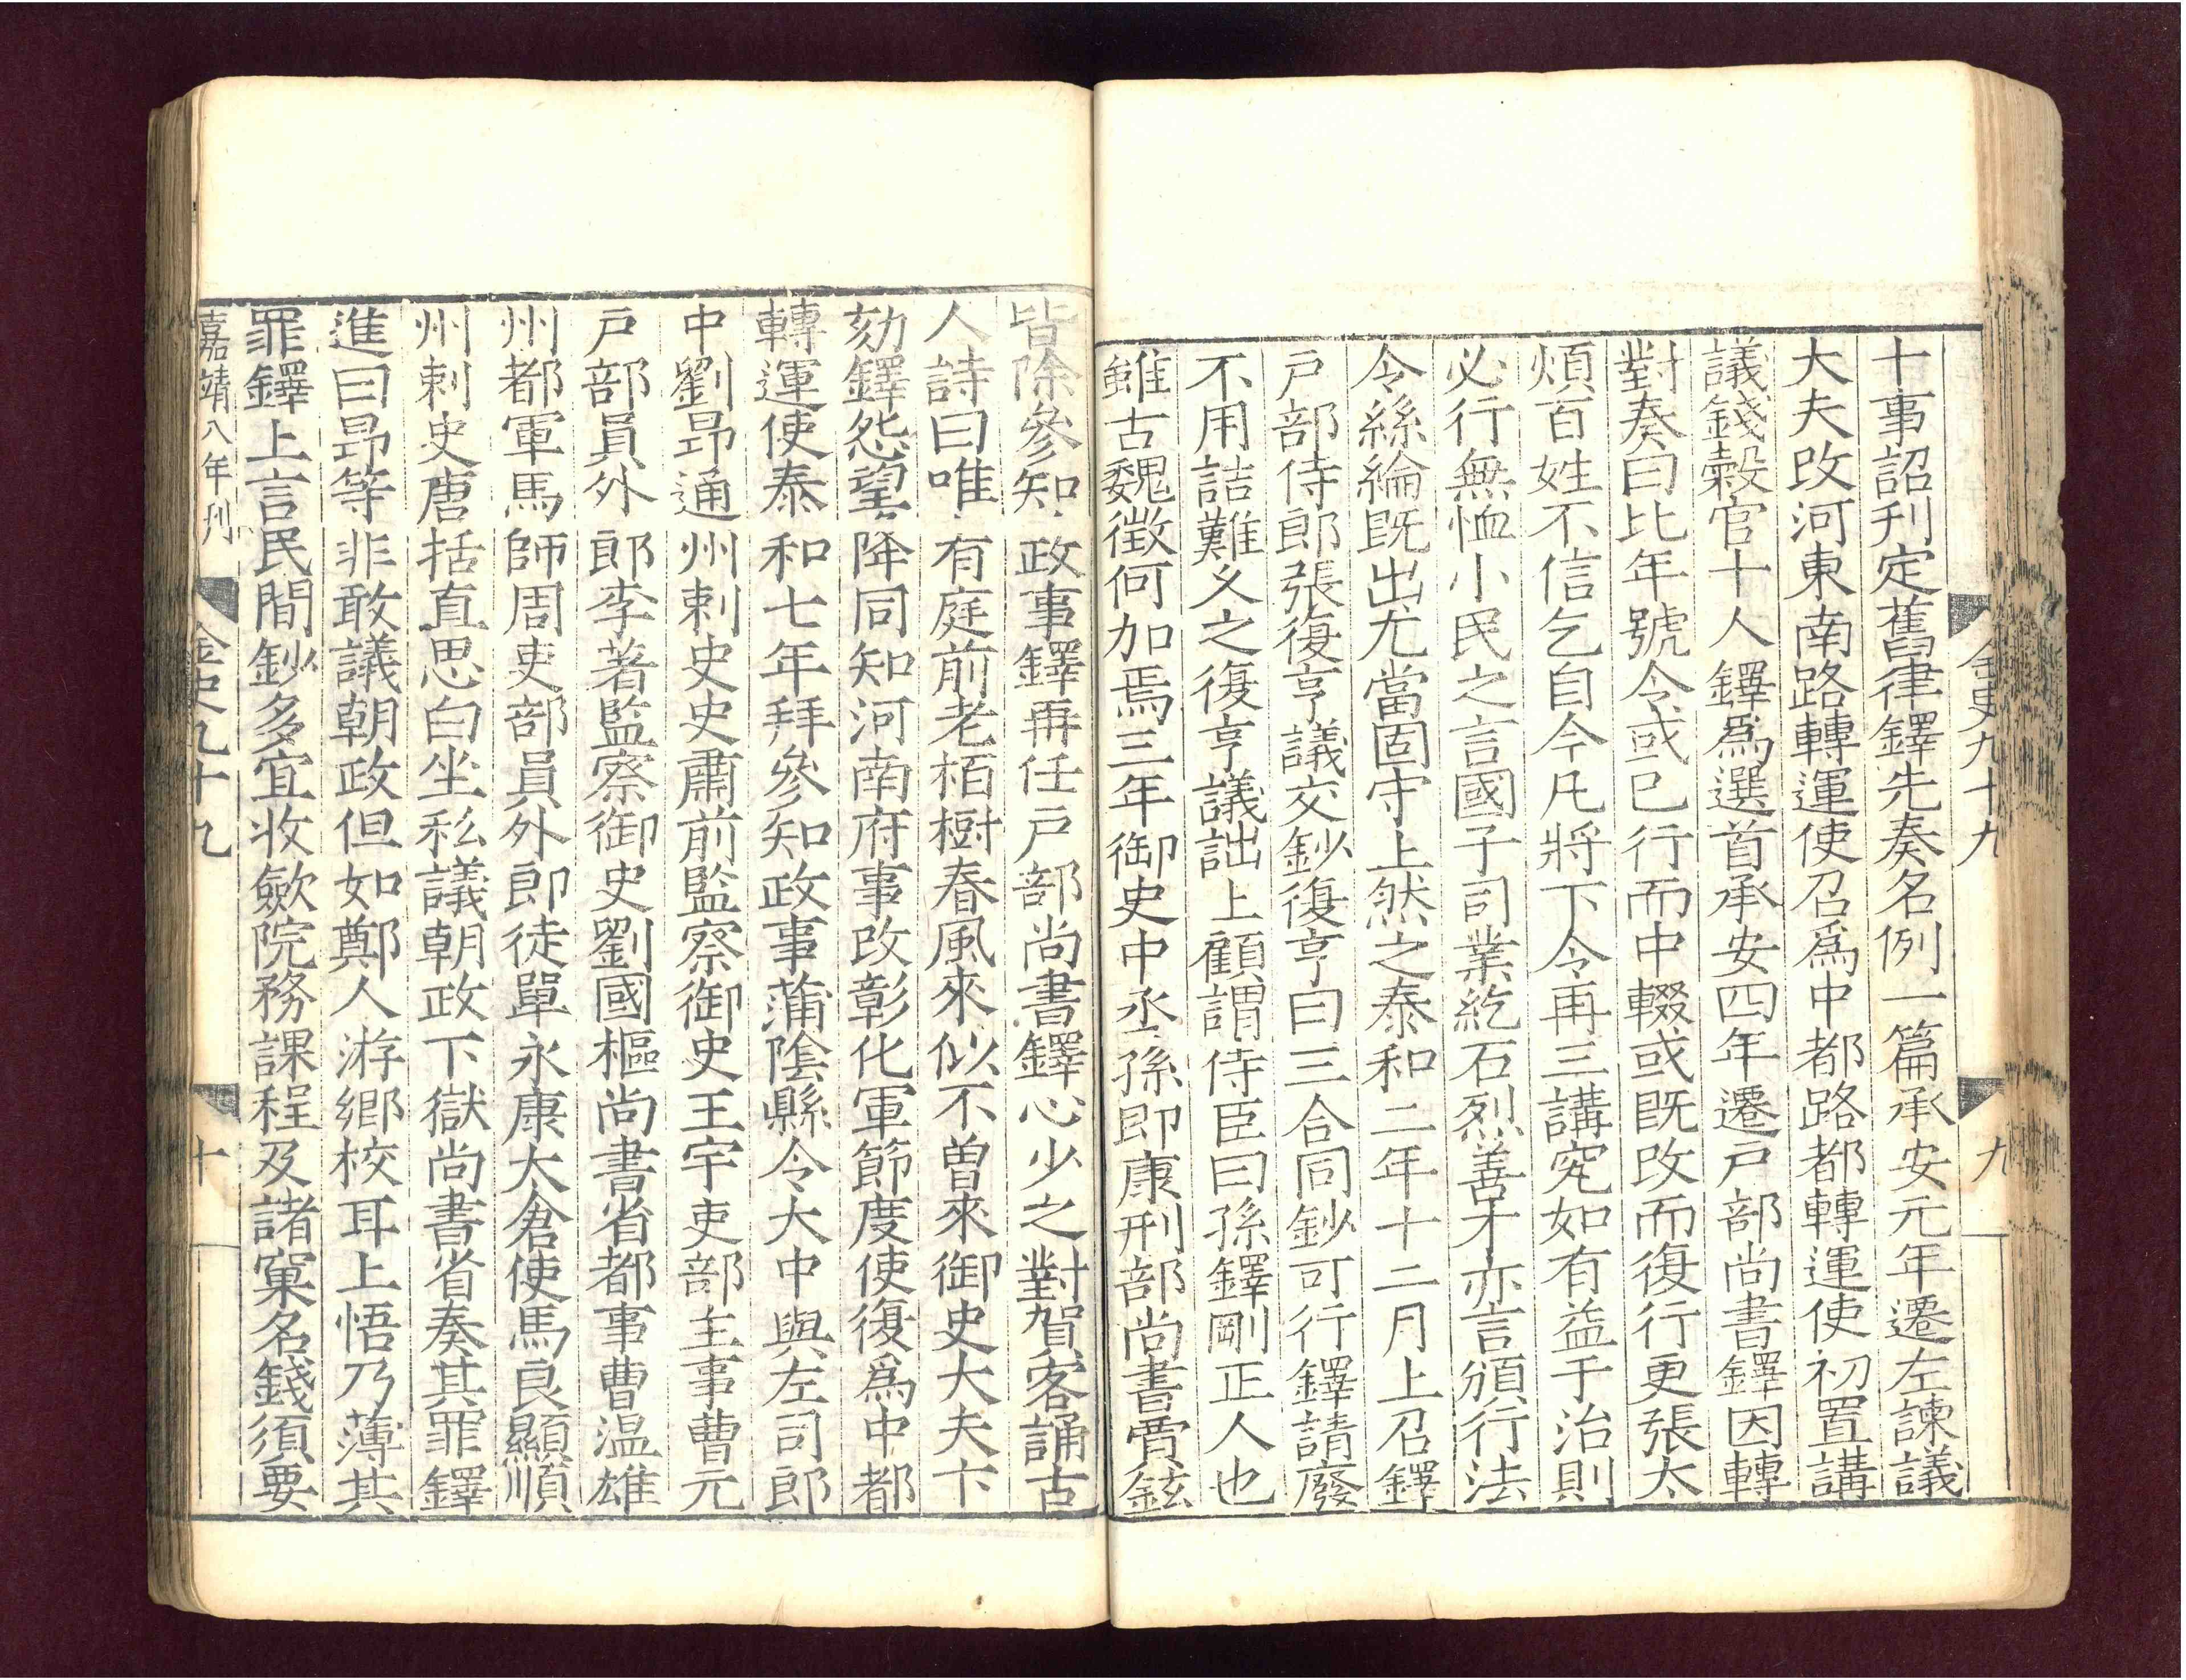 金史九十九
九
十事詔刋定舊律鐸先奏名例一篇承安元年遷左諫議
大夫改河東南路轉運使召爲中都路都轉運使初置講
議錢榖官十人鐸爲選首承安四年遷戸部尚書鐸因轉
對奏曰比年號令或已行而中輟或既改而復行更張太
煩百姓不信乞自今凡將下令再三講究如有益于治則
必行無恤小民之言國子司業紇石烈善才亦言頒行法
令絲綸既出尤當固守上然之泰和二年十二月上召鐸
戸部侍郎張復亨議交鈔復亨曰三合同鈔可行鐸請廢
不用詰難久之復亨議詘上顧謂侍臣曰孫鐸剛正人也
雖古魏徵何加焉三年御史中丞孫即康刑部尚書賈鉉
皆除參知政事鐸再任戸部尚書鐸心少之對賀客誦古
人詩曰唯有庭前老栢樹春風來似不曽來御史大夫卞
劾鐸怨望降同知河南府事改彰化軍節度使復爲中都
轉運使泰和七年拜參知政事蒲陰縣令大中與左司郎
中劉昂通州剌史史肅前監察御史王宇吏部主事曹元
戸部員外郎李著監察御史劉國樞尚書省都事曹温雄
州都軍馬師周吏部員外郎徒單永康太倉使馬良顯順
州剌史唐括直思白坐私議朝政下獄尚書省奏其罪鐸
進曰昂等非敢議朝政但如鄭人游郷校耳上悟乃薄其
罪鐸上言民間鈔多宜收斂院務課程及諸窠名錢須要
嘉靖八年刋
金史九十九
十